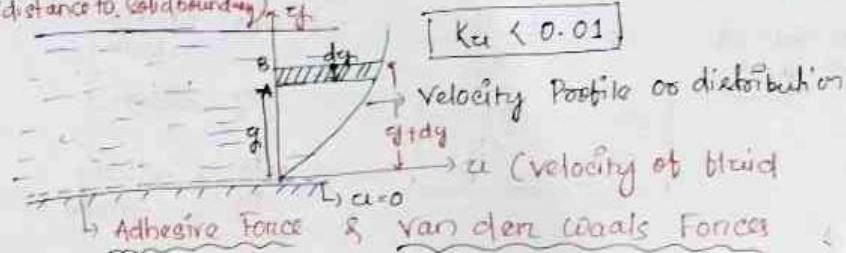 distance to. (solid boundary) y
Ku < 0.01
B
dy
A
y
y+dy
→ velocity Profile or distribution
→ u (velocity of fluid
↳ u=0
↳ Adhesive Force & van der Waals Forces